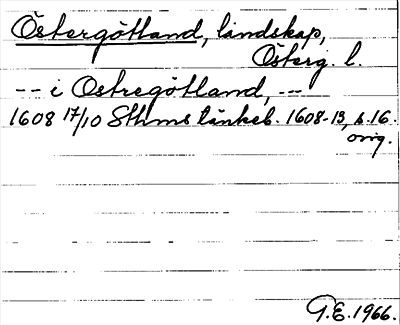 Östergötland, landskap,
Österg. l.
-- i Ostregötland, --
1608 17/10 Sthms tänkeb. 1608-13, s. 16.
orig.
G.E. 1966.